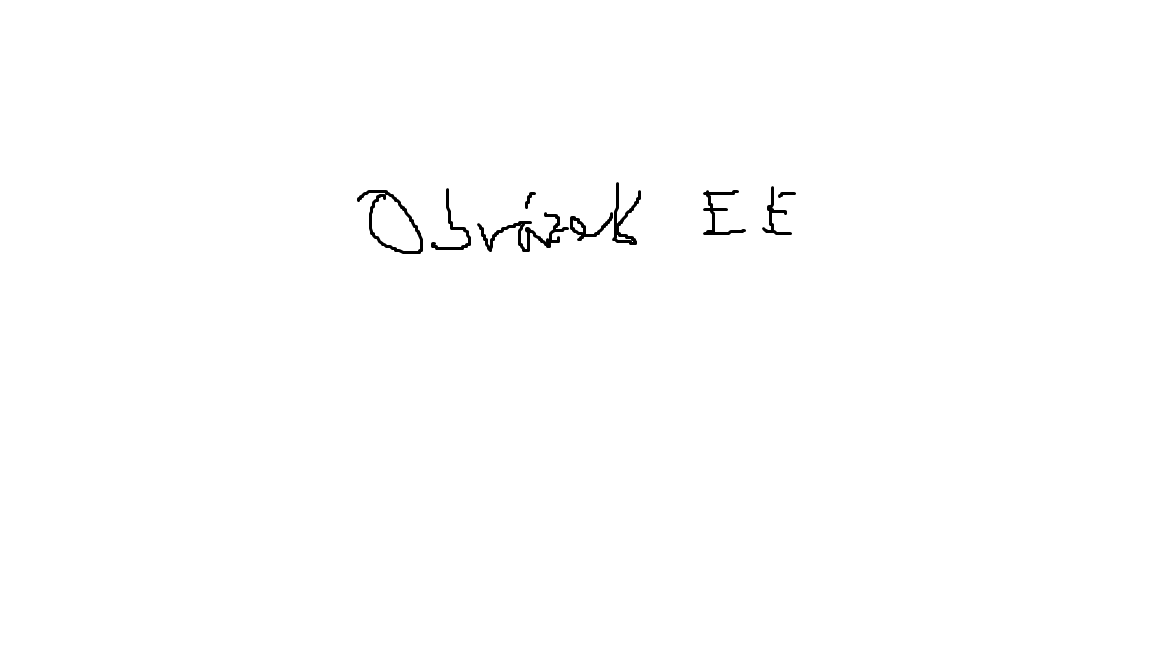 Obrázek EE